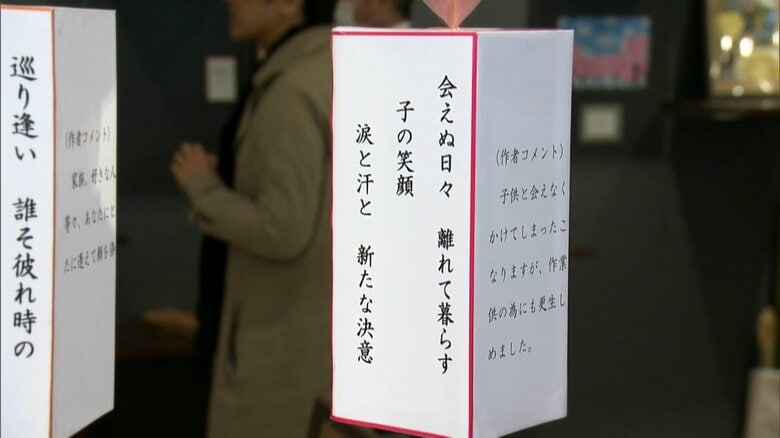 会えぬ日々　離れて暮らす
子の笑顔
涙と汗と　新たな決意
(作者コメント)
子供と会えなく
かけてしまったこ
なりますが、作業
供の為にも更生し
めました。
巡り逢い　誰そ彼れ時の
(作者コメント)
家族、好きな人
等々、あなたにと
たに逢えて顔を